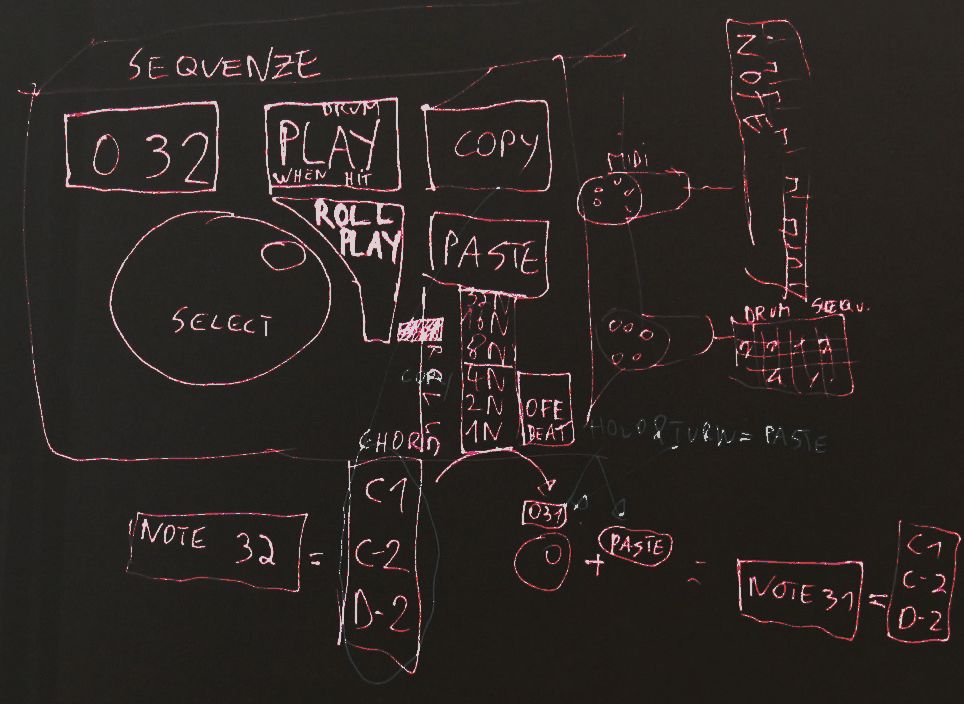 SEQUENZE
0 32
DRUM
PLAY
WHEN HIT
COPY
ROLL
PLAY
PASTE
SELECT
32N
16N
8N
4N
2N
1N
OFF
BEAT
MIDI
DRUM SEEQU.
CHORD
HOLD & TURN = PASTE
NOTE 32 =
C1
C-2
D-2
031
+ PASTE
=
NOTE 31 =
C1
C-2
D-2